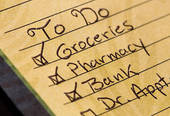 To Do
Groceries
Pharmacy
Bank
Dr. Appt